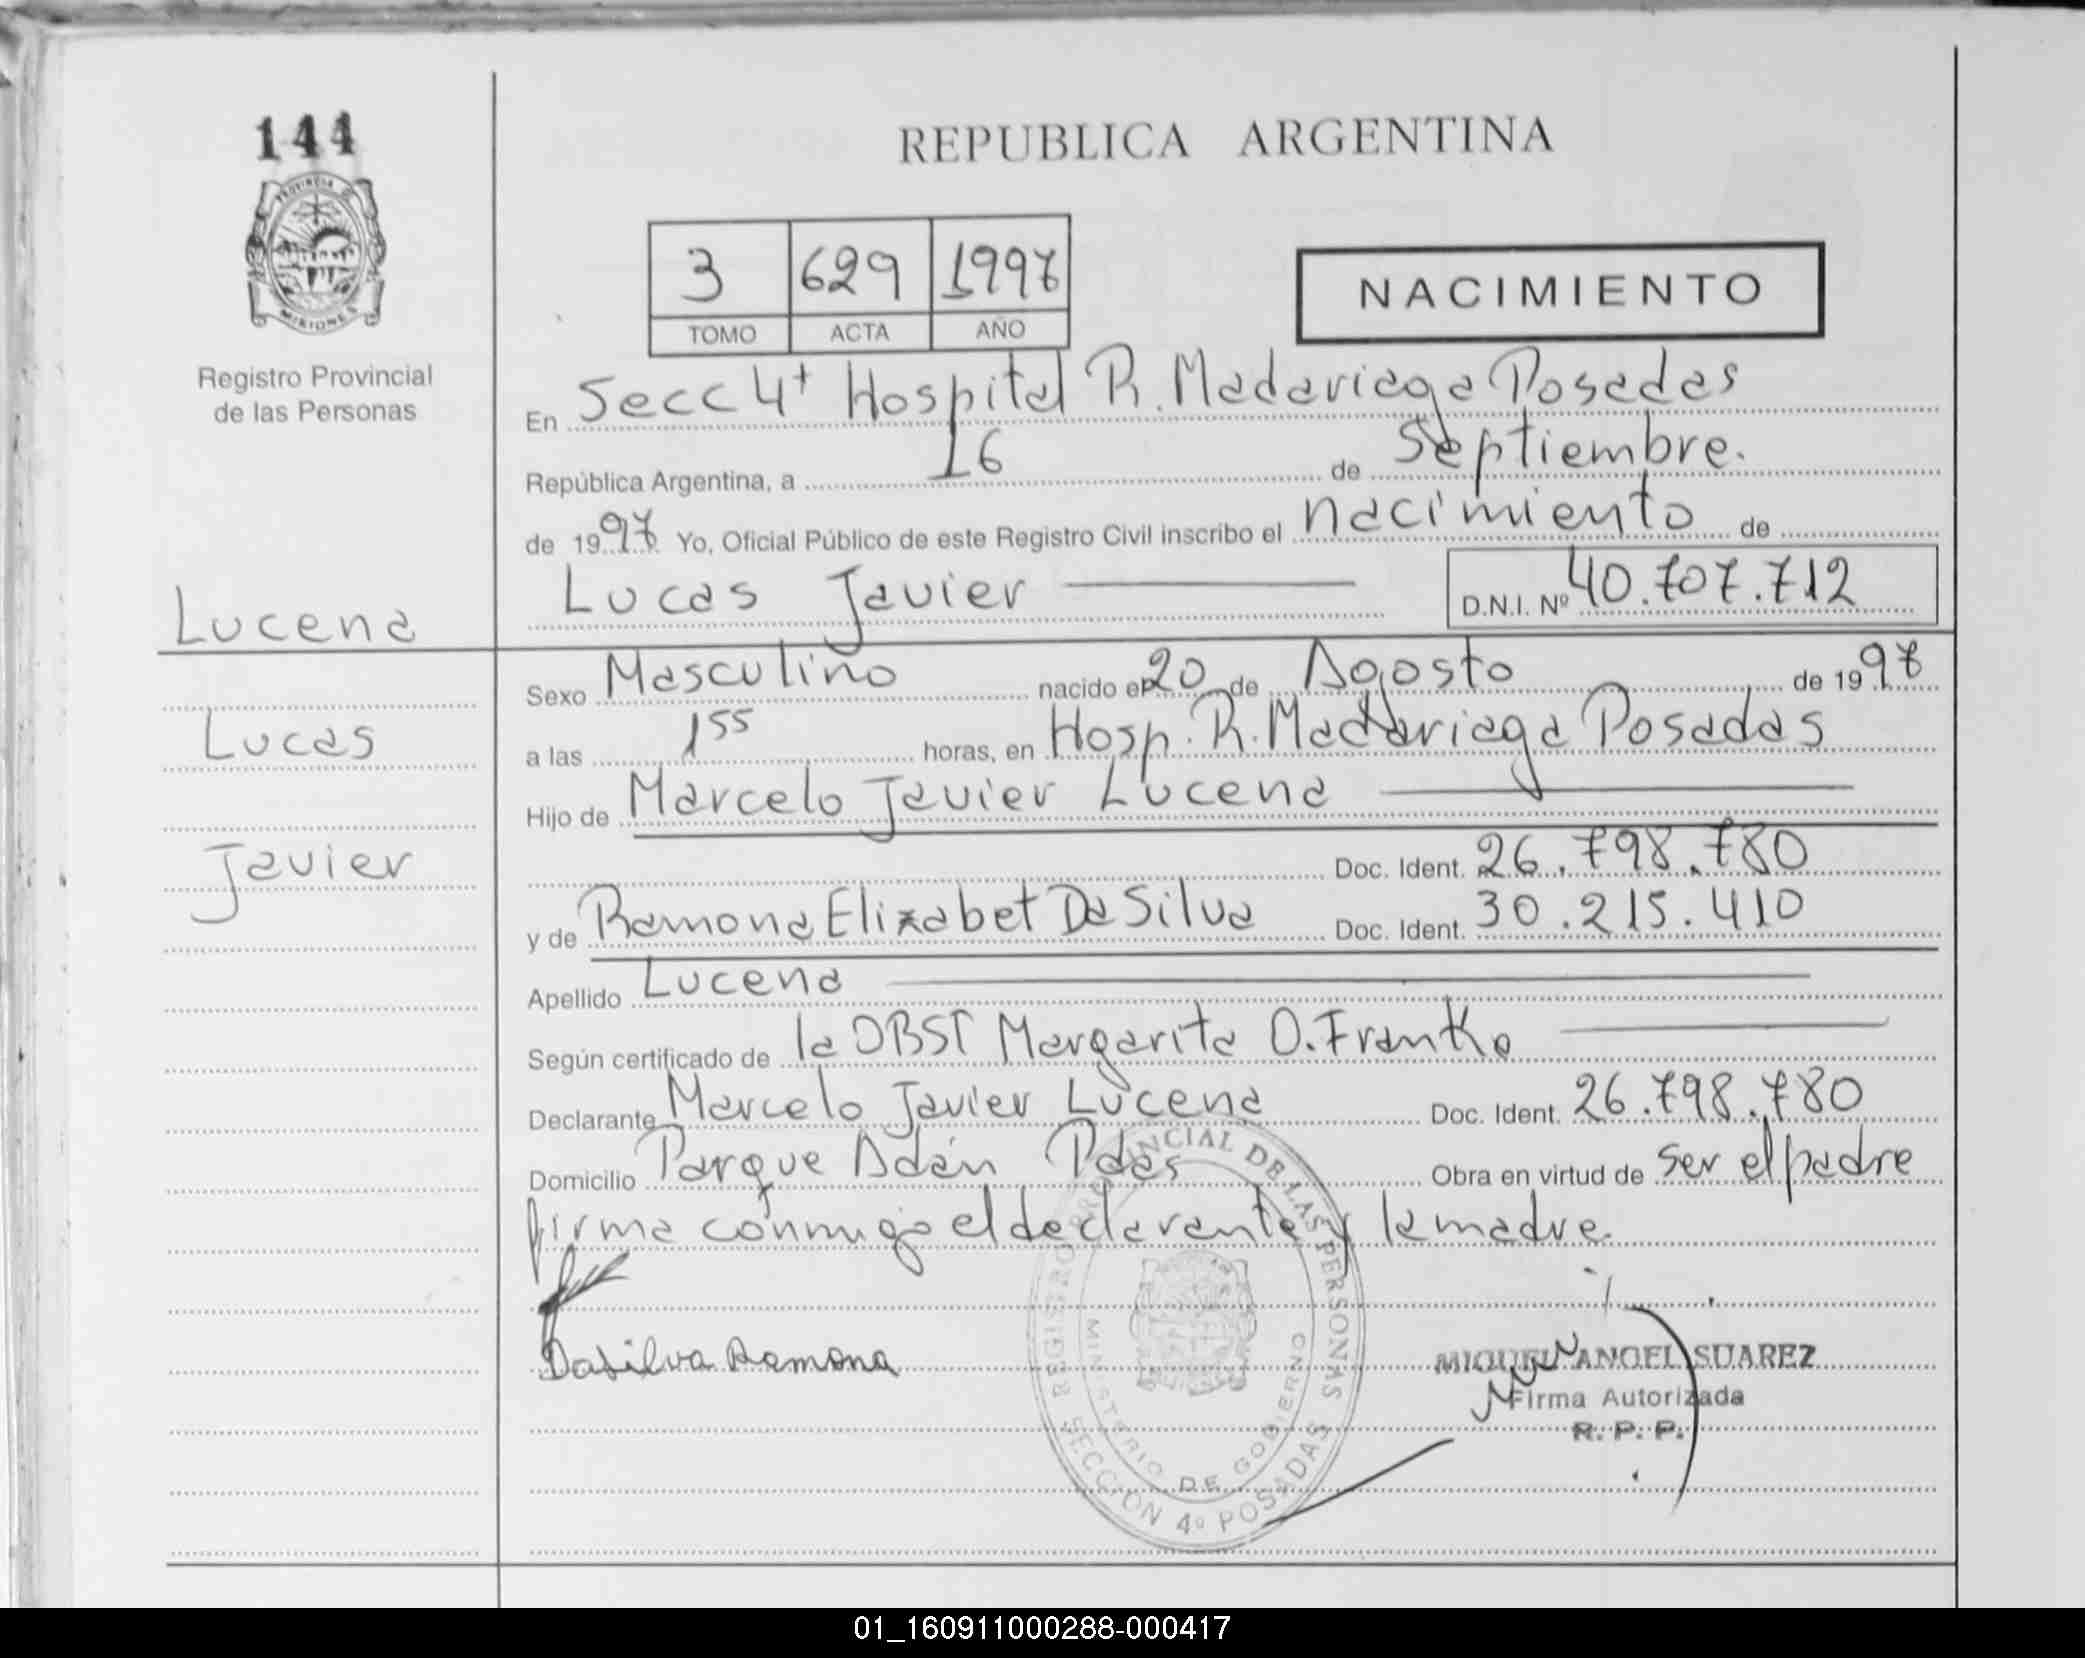 144
REPUBLICA ARGENTINA
PROVINCIA
MISIONES
Registro Provincial
de las Personas
3 629 1997
TOMO ACTA AÑO
NACIMIENTO
En Secc 4ª Hospital R. Madariaga Posadas
República Argentina, a 16 de Septiembre.
de 1997 Yo, Oficial Público de este Registro Civil inscribo el nacimiento de
Lucas Javier D.N.I. Nº 40.707.712
Lucena
Lucas
Javier
Sexo Masculino nacido el 20 de Agosto de 1997
a las 1 55 horas, en Hosp. R. Madariaga Posadas
Hijo de Marcelo Javier Lucena
Doc. Ident. 26.798.780
y de Ramona Elizabet Da Silva Doc. Ident. 30.215.410
Apellido Lucena
Según certificado de la OBST Margarita O. Franko
Declarante Marcelo Javier Lucena Doc. Ident. 26.798.780
Domicilio Parque Adán Pdas Obra en virtud de ser el padre
firma conmigo el declarante y la madre.
Dasilva Ramona
REGISTRO PROVINCIAL DE LAS PERSONAS
MINISTERIO DE GOBIERNO
SECCION 4º POSADAS
MIGUEL ANGEL SUAREZ
Firma Autorizada
R. P. P.
01_160911000288-000417